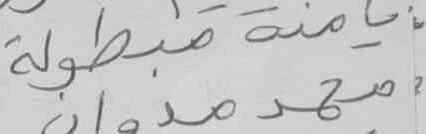 يامنة مبطولة
محمد مدوان